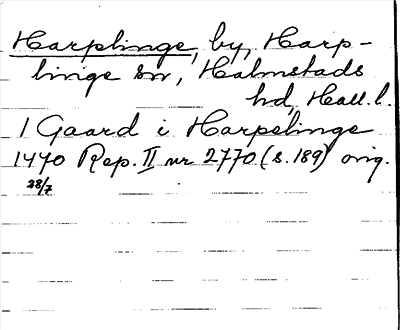 Harplinge, by, Harp-
linge sn, Halmstads
hd, Hall. l.
1 Gaard i Harpelinge
1470 Rep. II nr 2770 (s. 189) orig.
28/7